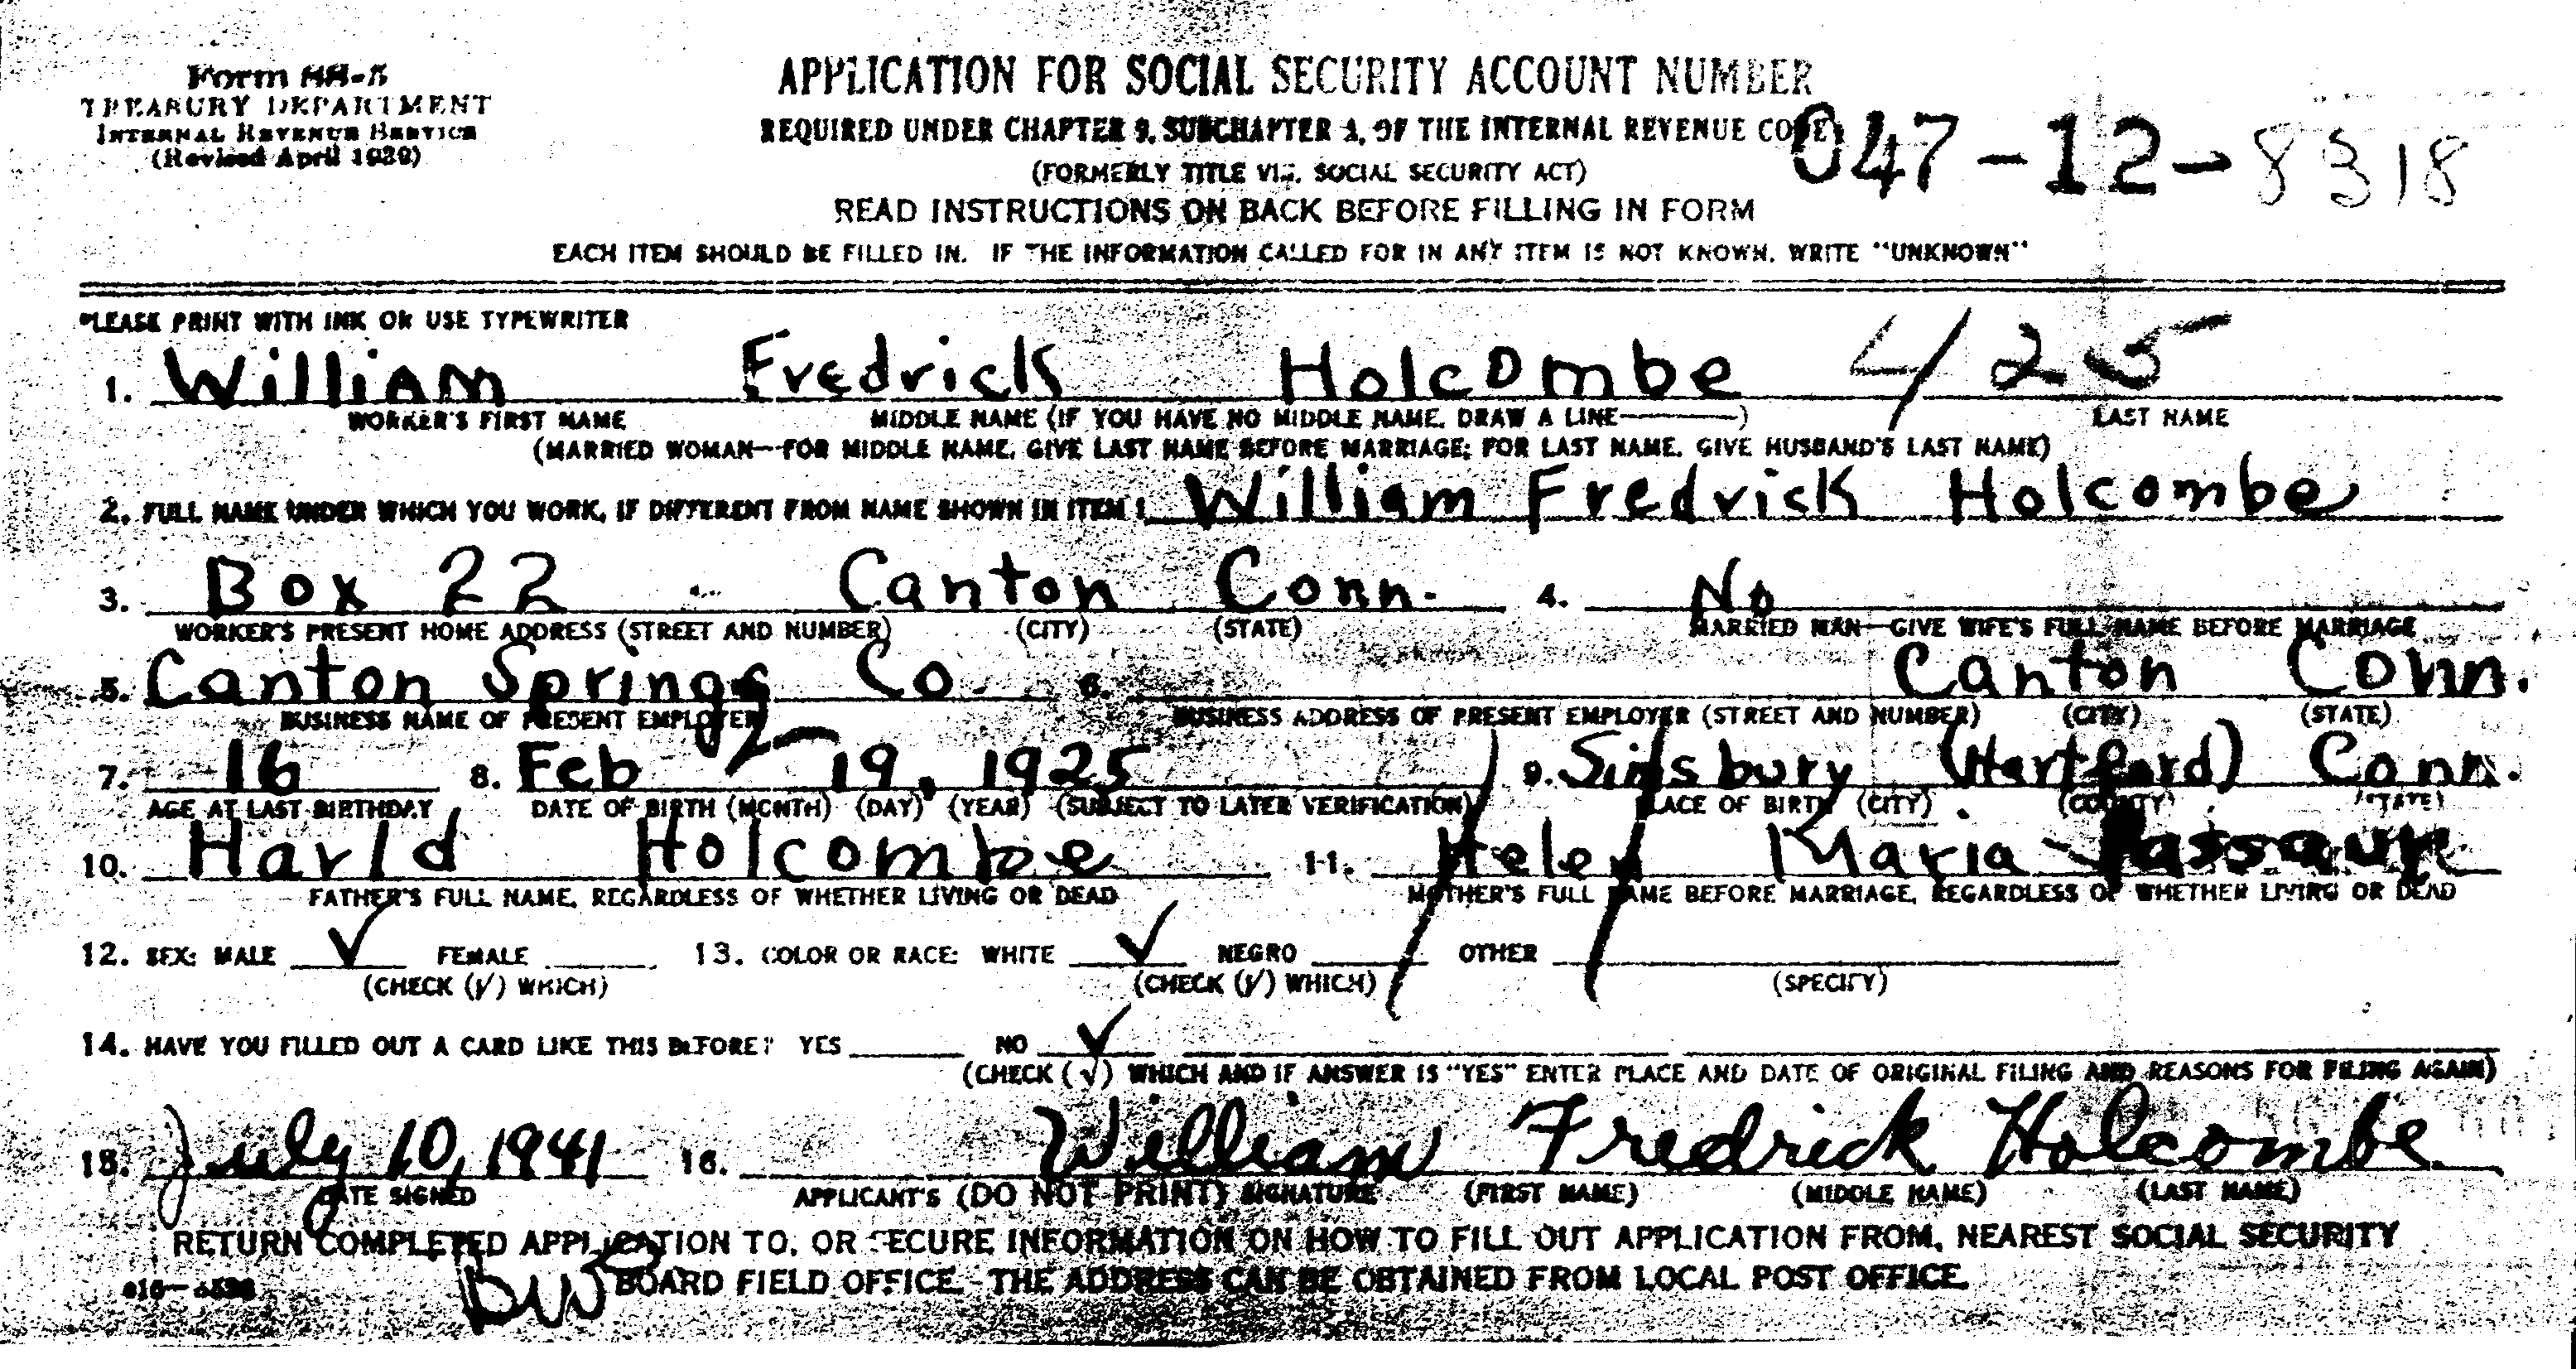 Form SS-5
TREASURY DEPARTMENT
INTERNAL REVENUE SERVICE
(Revised April 1939)
APPLICATION FOR SOCIAL SECURITY ACCOUNT NUMBER
REQUIRED UNDER CHAPTER 9, SUBCHAPTER A, OF THE INTERNAL REVENUE CODE
(FORMERLY TITLE VIII, SOCIAL SECURITY ACT)
047-12-8318
READ INSTRUCTIONS ON BACK BEFORE FILLING IN FORM
EACH ITEM SHOULD BE FILLED IN. IF THE INFORMATION CALLED FOR IN ANY ITEM IS NOT KNOWN, WRITE "UNKNOWN"
PLEASE PRINT WITH INK OR USE TYPEWRITER
1. William Fredrick Holcombe 425
WORKER'S FIRST NAME MIDDLE NAME (IF YOU HAVE NO MIDDLE NAME, DRAW A LINE———) LAST NAME
(MARRIED WOMAN—FOR MIDDLE NAME, GIVE LAST NAME BEFORE MARRIAGE; FOR LAST NAME, GIVE HUSBAND'S LAST NAME)
2. FULL NAME UNDER WHICH YOU WORK, IF DIFFERENT FROM NAME SHOWN IN ITEM 1 William Fredrick Holcombe
3. Box 22 Canton Conn. 4. No
WORKER'S PRESENT HOME ADDRESS (STREET AND NUMBER) (CITY) (STATE) MARRIED MAN—GIVE WIFE'S FULL NAME BEFORE MARRIAGE
5. Canton Springs Co. 6. Canton Conn.
BUSINESS NAME OF PRESENT EMPLOYER BUSINESS ADDRESS OF PRESENT EMPLOYER (STREET AND NUMBER) (CITY) (STATE)
7. 16 8. Feb 19, 1925 9. Simsbury (Hartford) Conn.
AGE AT LAST BIRTHDAY DATE OF BIRTH (MONTH) (DAY) (YEAR) (SUBJECT TO LATER VERIFICATION) PLACE OF BIRTH (CITY) (COUNTY) (STATE)
10. Harld Holcombe 11. Helen Maria
FATHER'S FULL NAME, REGARDLESS OF WHETHER LIVING OR DEAD MOTHER'S FULL NAME BEFORE MARRIAGE, REGARDLESS OF WHETHER LIVING OR DEAD
12. SEX: MALE ✓ FEMALE 13. COLOR OR RACE: WHITE ✓ NEGRO OTHER
(CHECK (√) WHICH) (CHECK (√) WHICH) (SPECIFY)
14. HAVE YOU FILLED OUT A CARD LIKE THIS BEFORE? YES NO ✓
(CHECK (√) WHICH AND IF ANSWER IS "YES" ENTER PLACE AND DATE OF ORIGINAL FILING AND REASONS FOR FILING AGAIN)
15. July 10, 1941 16. William Fredrick Holcombe
DATE SIGNED APPLICANT'S (DO NOT PRINT) SIGNATURE (FIRST NAME) (MIDDLE NAME) (LAST NAME)
RETURN COMPLETED APPLICATION TO, OR SECURE INFORMATION ON HOW TO FILL OUT APPLICATION FROM, NEAREST SOCIAL SECURITY
BOARD FIELD OFFICE. THE ADDRESS CAN BE OBTAINED FROM LOCAL POST OFFICE.